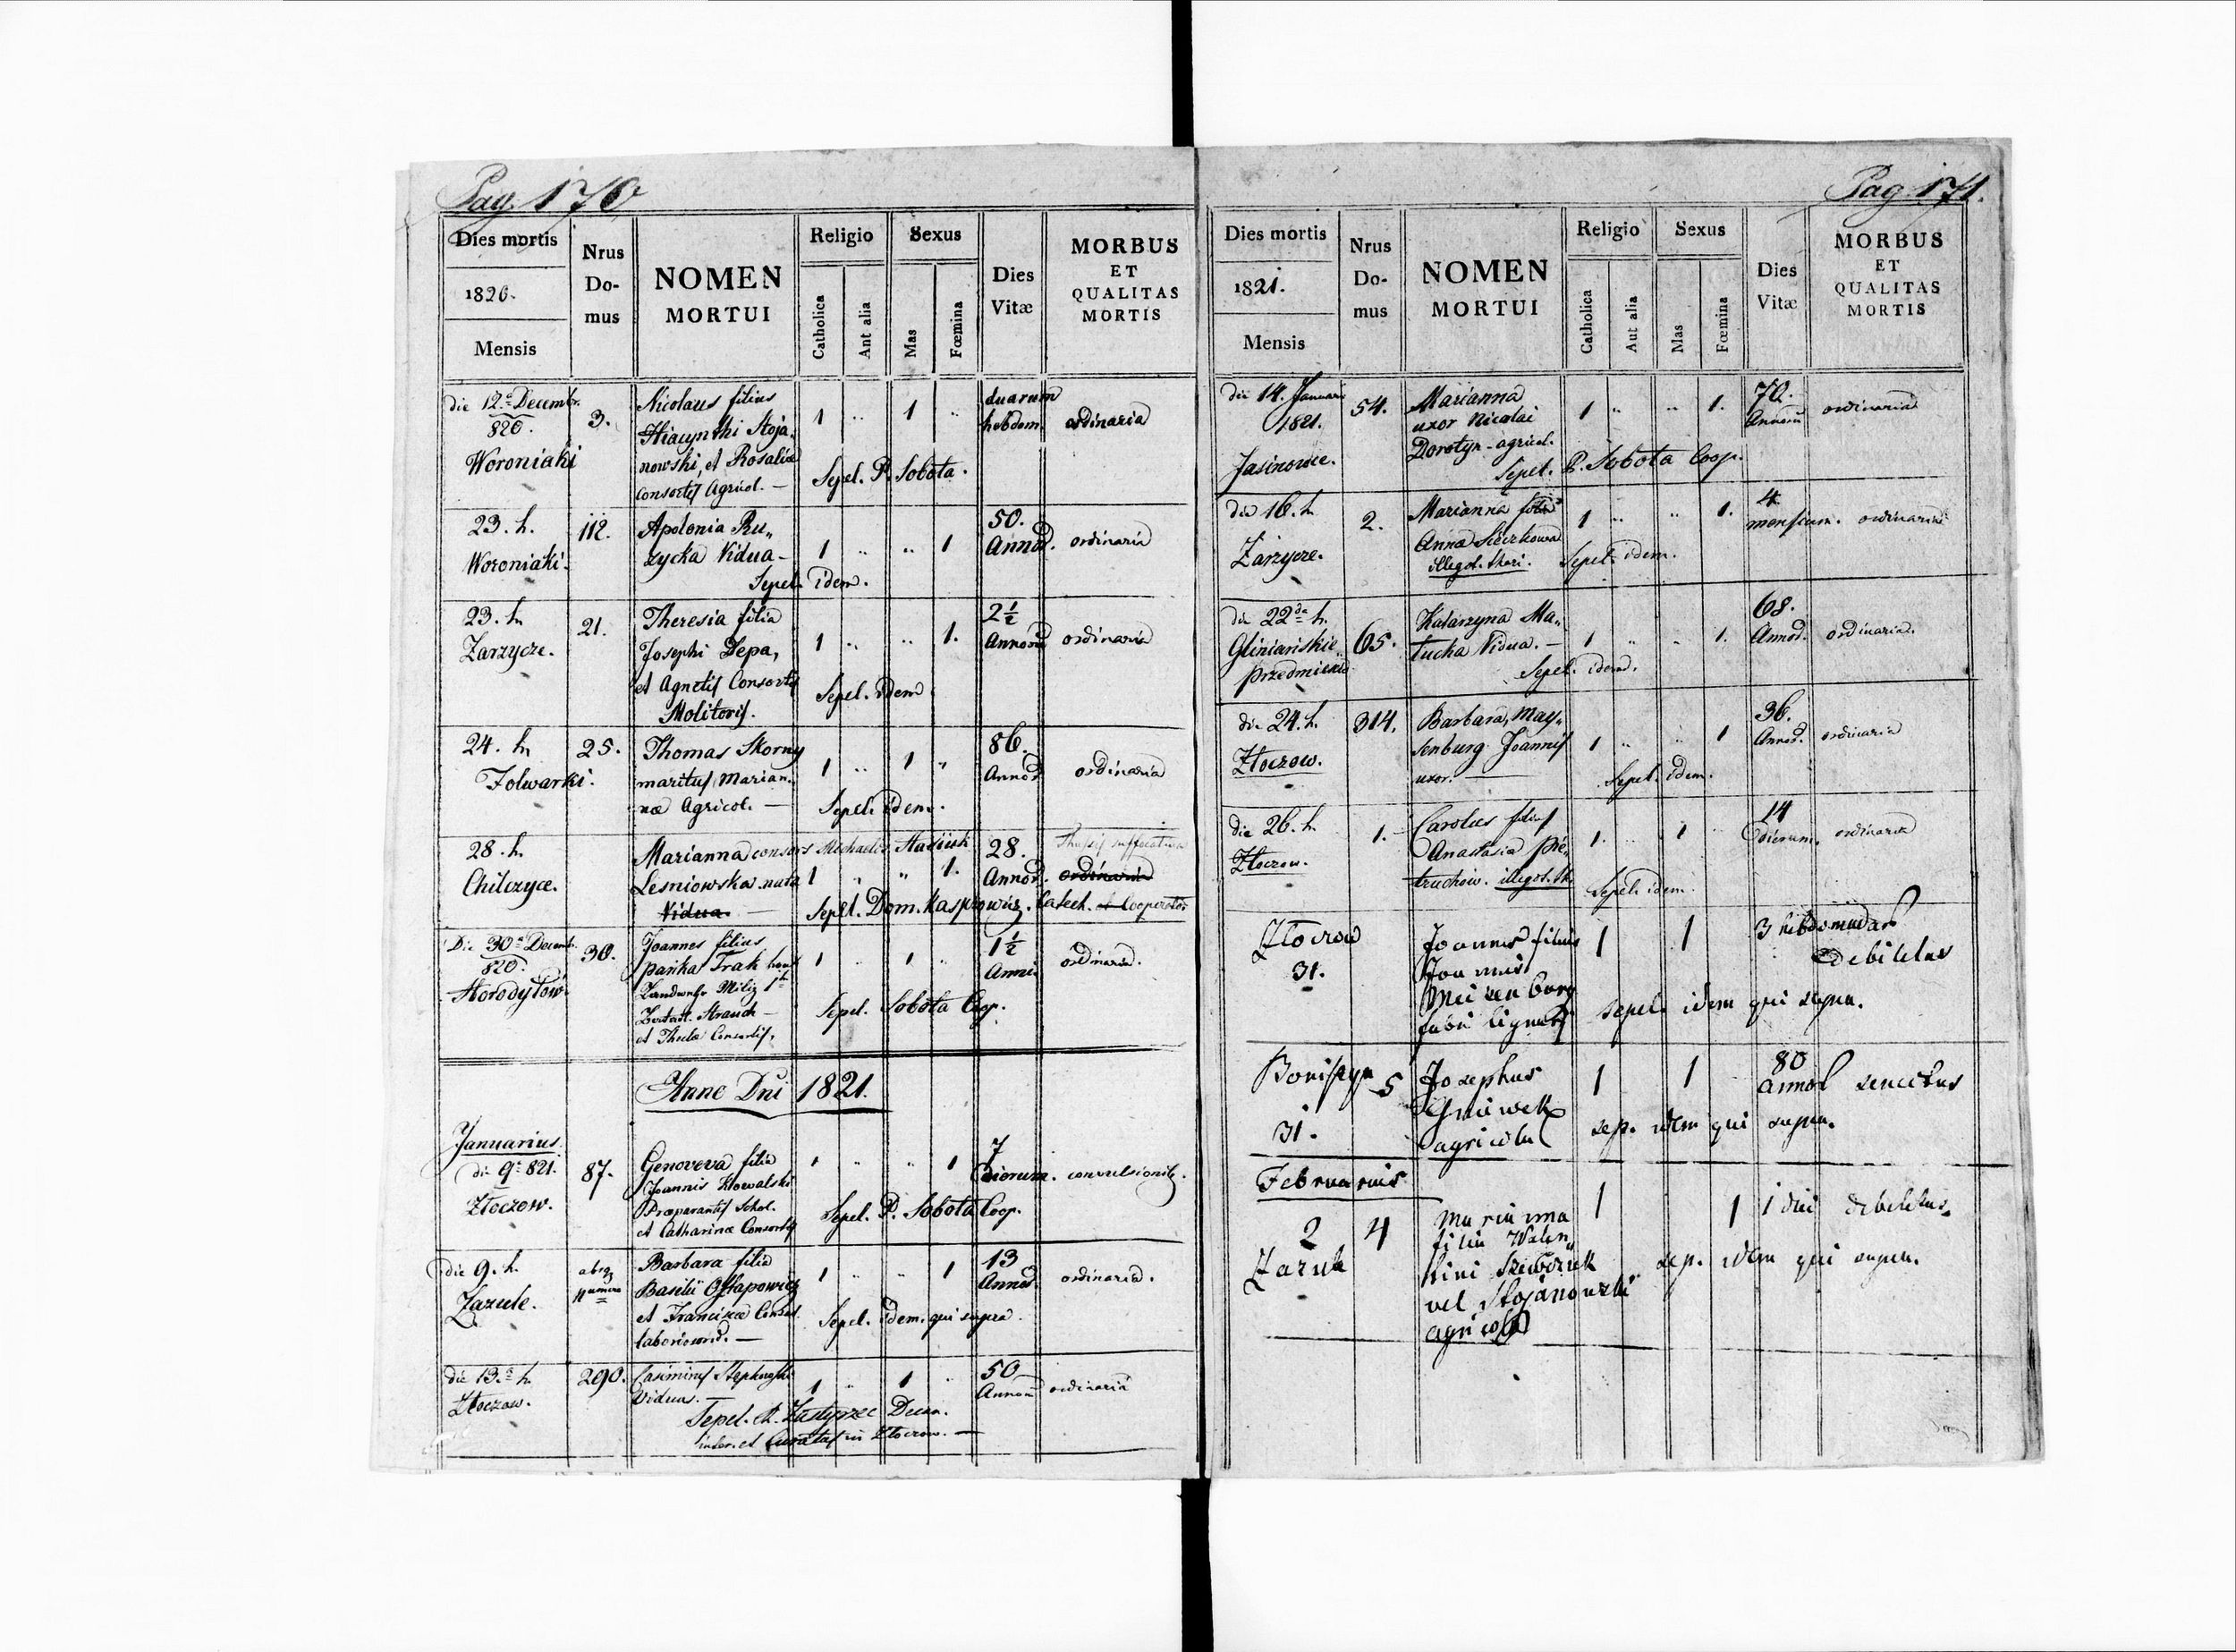 Pag. 170
Dies mortis
1820.
Mensis
Nrus
Do-
mus
NOMEN
MORTUI
Religio
Catholica
Aut alia
Sexus
Mas
Fœmina
Dies
Vitæ
MORBUS
ET
QUALITAS
MORTIS
die 12a Decembr.
820.
Woroniaki
3.
Nicolaus filius
Hiacynthi Stoja-
nowski, et Rosaliæ
consortis Agricol. —
1 " 1 "
duarum
hebdom.
ordinaria
Sepel. P. Sobota.
23. h.
Woroniaki.
112.
Apolonia Ru„
zycka Vidua —
1 " " 1
50.
Annor.
ordinaria
Sepel. idem.
23. h.
Zarzycze.
21.
Theresia filia
Josephi Depa,
et Agnetis Consortis
Molitoris.
1 " " 1.
2½
Annorum
ordinaria
Sepel. idem
24. h.
Folwarki.
25.
Thomas Skorny
maritus Marian-
næ Agricol. —
1 " 1 "
86.
Annor.
ordinaria
Sepel. idem.
28. h.
Chilczyce.
Marianna consors Michaelis Stasiuk
Lesniowska nata
Vidua. —
1 " " 1.
28.
Annor.
suffocativa
ordinaria
Sepel. Dom. Kasprowicz. Catech. et Cooperator
Die 30a Decemb.
820.
Horodyłow.
30.
Joannes filius
Pańka Trak
Landwehr Miliz
Strauch —
et Theclæ Consortis,
1 " 1 "
1½
Anni
ordinaria.
Sepel. Sobota Coop.
Anno Dni 1821.
Januarius.
die 9a 821.
Złoczow.
87.
Genoveva filia
Joannis Kowalski
Præparantis Schol.
et Catharinæ Consortis
1 " " 1
7
Dierum.
convulsionib.
Sepel. P. Sobota Coop.
die 9. h.
Zazule.
absq
numero
Barbara filia
Basilii Ostapowicz
et Franciscæ Consort.
laboriosor. —
1 " " 1
13
Annor.
ordinaria.
Sepel. idem. qui supra.
die 13. a h.
Złoczow.
290.
Casimirus
Viduus. —
1 " 1 "
50
Annorum
ordinaria
Sepel. R. Decan.
et Curatus in Złoczow. —
Pag. 171.
Dies mortis
1821.
Mensis
Nrus
Do-
mus
NOMEN
MORTUI
Religio
Catholica
Aut alia
Sexus
Mas
Fœmina
Dies
Vitæ
MORBUS
ET
QUALITAS
MORTIS
die 14. Januarii
1821.
Jasinowce.
54.
Marianna
uxor Nicolai
Dorotyn - agricol.
1 " " 1.
70.
Annorum
ordinaria
Sepel. P. Sobota Coop.
die 16. h.
Zarzycze.
2.
Marianna filia
Anna Sieczkowa
illegit. thori.
1 " " 1.
4.
mensium.
ordinaria
Sepel. idem.
die 22da h.
Gliniańskie
przedmieście
65.
Katarzyna Ma„
tucka Vidua. —
1 " " 1.
68.
Annor.
ordinaria.
Sepel. idem.
die 24. h.
Złoczow.
314.
Barbara May„
senburg Joannis
uxor. —
1 " " 1
36.
Annor.
ordinaria
Sepel. idem.
die 26. h.
Złoczow.
1.
Carolus filius
Anastasia Pie„
truchow. illegit. th.
1. " 1 "
14
Dierum.
ordinaria
Sepel. idem
Złoczow
31.
Joannes filius
Joannis
Meisenburg
fabri lignarij
1 1
3 hebdomadar
debilitas
sepel. idem qui supra.
Boniszyn
31.
5
Josephus
Gniewek
agricola
1 1
80
annor
senectus
sep. idem qui supra.
Februarius
2
Zazule
4
Marianna
filia Walen„
tini Szewczuk
vel Stojanowski
agricola
1 1
1 diei
debilitas.
sep. idem qui supra.